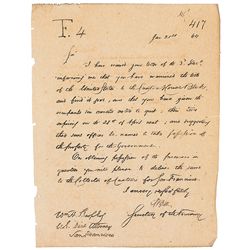 No. 417
F. 4
Jan 22nd 64
Sir
I have received your letter of the 3d Dec.
informing me that you have examined the title
of the United States to the Custom House Block, and
find it good; and that you have given the
tenants six months notice to quit; this notice
expiring on the 25th of April next; and suggesting
that some officer be named to take possession of
the property for the Government.
On obtaining possession of the premises in
question you will please to deliver the same
to the Collector of Customs for San Francisco.
I am very respectfully
Secretary of the Treasury
Wm H.
U.S. Dist Attorney
San Francisco